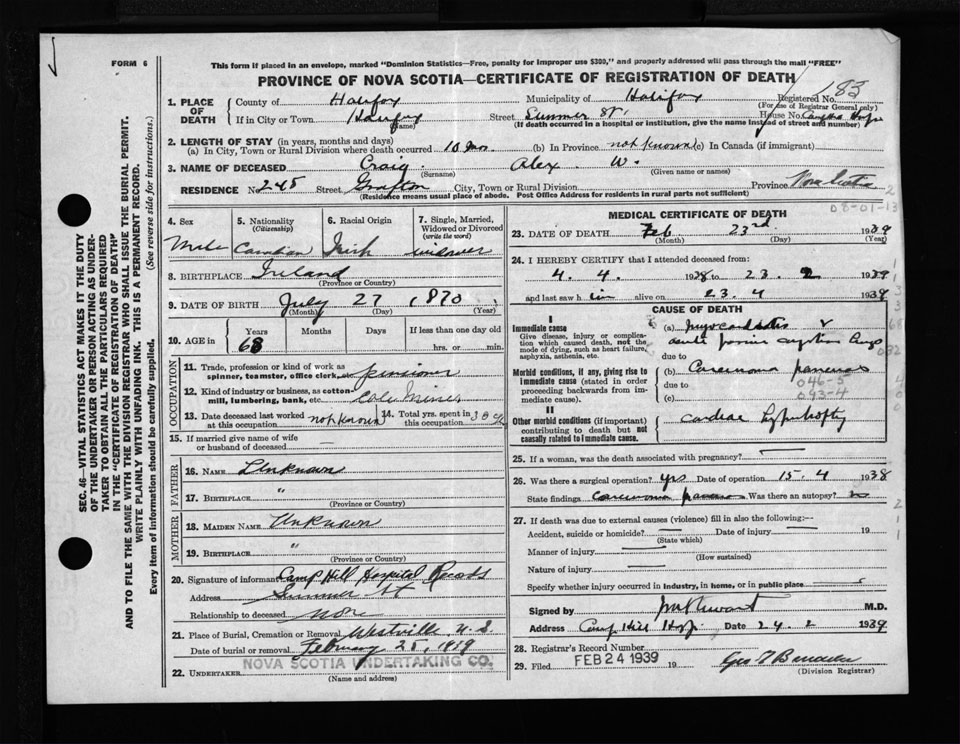 FORM 6
This form if placed in an envelope, marked "Dominion Statistics—Free, penalty for improper use $300," and properly addressed will pass through the mail "FREE"
PROVINCE OF NOVA SCOTIA—CERTIFICATE OF REGISTRATION OF DEATH
83
1. PLACE OF DEATH County of Halifax Municipality of Halifax Registered No.
(For use of Registrar General only)
If in City or Town Halifax (Name) Street Summer St House No. Camp Hill Hosp
(If death occurred in a hospital or institution, give the name instead of street and number)
2. LENGTH OF STAY (in years, months and days)
(a) In City, Town or Rural Division where death occurred 10 mos. (b) In Province not known (c) In Canada (if immigrant)
3. NAME OF DECEASED Craig Alex W.
(Surname) (Given name or names)
RESIDENCE No. 245 Street Grafton City, Town or Rural Division Province Nova Scotia
(Residence means usual place of abode. Post Office Address for residents in rural parts not sufficient)
08-01-13
4. Sex Male
5. Nationality (Citizenship) Canadian
6. Racial Origin Irish
7. Single, Married, Widowed or Divorced (write the word) widower
8. BIRTHPLACE Ireland
(Province or Country)
9. DATE OF BIRTH July 27 1870
(Month) (Day) (Year)
10. AGE in Years Months Days If less than one day old
68 hrs. or min.
OCCUPATION
11. Trade, profession or kind of work as spinner, teamster, office clerk, etc. pensioner
12. Kind of industry or business, as cotton mill, lumbering, bank, etc. Cole Miner
13. Date deceased last worked at this occupation not known
14. Total yrs. spent in this occupation
15. If married give name of wife or husband of deceased
FATHER
16. NAME Unknown
17. BIRTHPLACE "
(Province or Country)
MOTHER
18. MAIDEN NAME Unknown
19. BIRTHPLACE "
(Province or Country)
20. Signature of informant Camp Hill Hospital Records
Address Summer St
Relationship to deceased none
21. Place of Burial, Cremation or Removal Westville N.S.
Date of burial or removal February 25, 1939
22. UNDERTAKER NOVA SCOTIA UNDERTAKING CO.
(Name and address)
MEDICAL CERTIFICATE OF DEATH
23. DATE OF DEATH Feb 23rd 1939
(Month) (Day) (Year)
24. I HEREBY CERTIFY that I attended deceased from:
4. 4. 1938 to 23. 2 1939
and last saw him alive on 23. 4 1939
CAUSE OF DEATH
I
Immediate cause
Give disease, injury or complication which caused death, not the mode of dying, such as heart failure, asphyxia, asthenia, etc.
(a) myocarditis
due to
Morbid conditions, if any, giving rise to immediate cause (stated in order proceeding backwards from immediate cause).
(b) Carcinoma pancreas
due to
046-5
(c)
II
Other morbid conditions (if important) contributing to death but not causally related to immediate cause.
cardiac hypertrophy
25. If a woman, was the death associated with pregnancy?
26. Was there a surgical operation? yes Date of operation 15-4 1938
State findings carcinoma pancreas Was there an autopsy? no
27. If death was due to external causes (violence) fill in also the following:—
Accident, suicide or homicide? Date of injury 19
(State which)
Manner of injury
(How sustained)
Nature of injury
Specify whether injury occurred in industry, in home, or in public place
Signed by M.D.
Address Camp Hill Hosp. Date 24. 2 1939
28. Registrar's Record Number
29. Filed FEB 24 1939 19
(Division Registrar)
SEC. 46—VITAL STATISTICS ACT MAKES IT THE DUTY
OF THE UNDERTAKER OR PERSON ACTING AS UNDER-
TAKER TO OBTAIN ALL THE PARTICULARS REQUIRED
IN THE "CERTIFICATE OF REGISTRATION OF DEATH"
AND TO FILE THE SAME WITH THE DIVISION REGISTRAR WHO SHALL ISSUE THE BURIAL PERMIT.
WRITE PLAINLY WITH UNFADING INK. THIS IS A PERMANENT RECORD.
Every item of information should be carefully supplied. (See reverse side for instructions.)